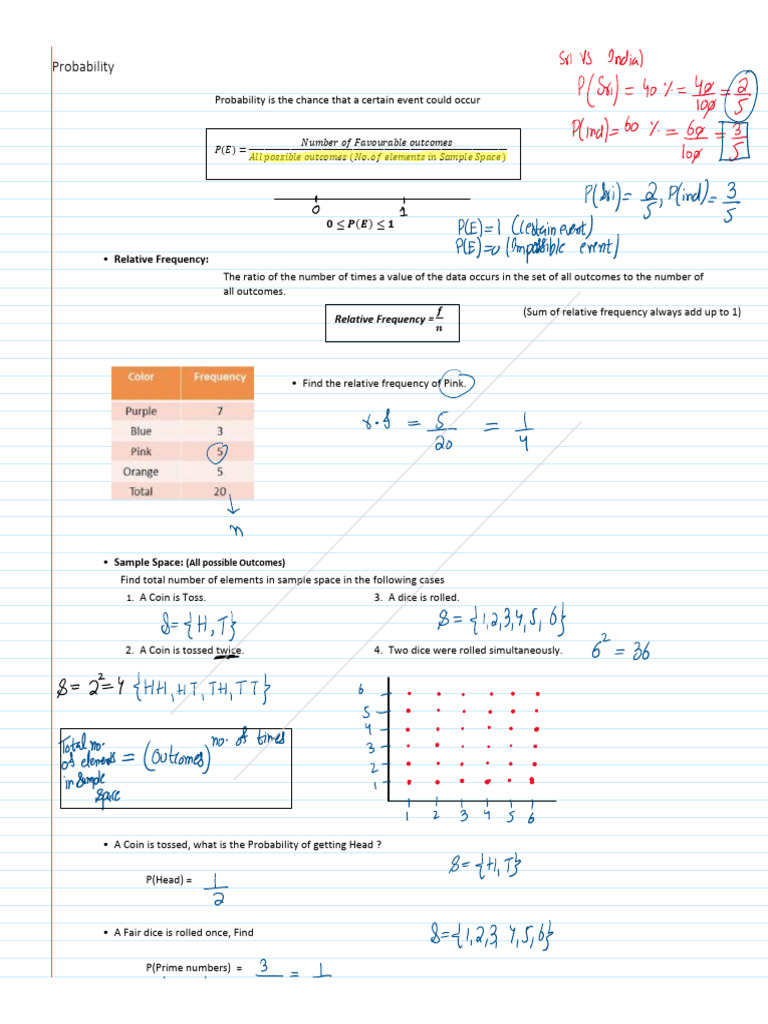 Probability
Sri VS India)
P(Sri) = 40 % = 40/100 = 2/5
P(ind) = 60 % = 60/100 = 3/5
Probability is the chance that a certain event could occur
P(E) = Number of Favourable outcomes / All possible outcomes (No. of elements in Sample Space)
P(Sri) = 2/5, P(ind) = 3/5
0 1
0 ≤ P(E) ≤ 1
P(E) = 1 (Certain event)
P(E) = 0 (Impossible event)
• Relative Frequency:
The ratio of the number of times a value of the data occurs in the set of all outcomes to the number of
all outcomes.
Relative Frequency = f/n
(Sum of relative frequency always add up to 1)
Color Frequency
Purple 7
Blue 3
Pink 5
Orange 5
Total 20
n
• Find the relative frequency of Pink.
r.f = 5/20 = 1/4
• Sample Space: (All possible Outcomes)
Find total number of elements in sample space in the following cases
1. A Coin is Toss.
S = {H, T}
3. A dice is rolled.
S = {1,2,3,4,5,6}
2. A Coin is tossed twice.
S = 2² = 4 {HH, HT, TH, TT}
4. Two dice were rolled simultaneously.
6² = 36
6
5
4
3
2
1
1 2 3 4 5 6
Total no.
of elements = (Outcomes)^no. of times
in Sample
Space
• A Coin is tossed, what is the Probability of getting Head ?
S = {H, T}
P(Head) = 1/2
• A Fair dice is rolled once, Find
S = {1,2,3 4,5,6}
P(Prime numbers) = 3 = 1